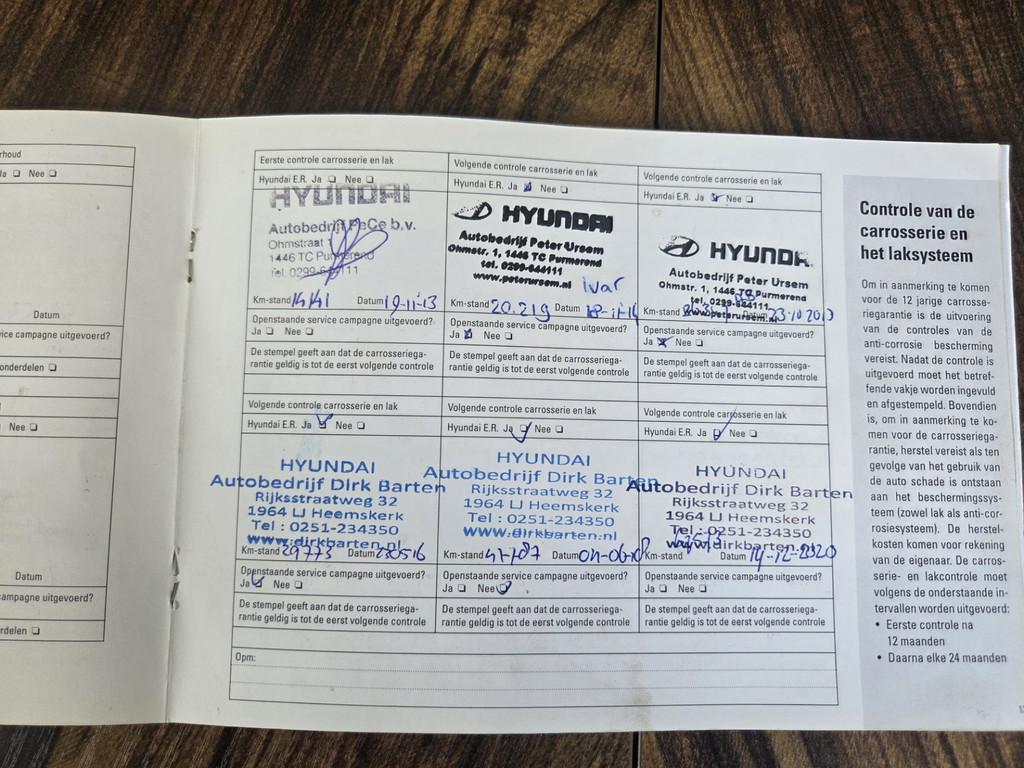 rhoud
Ja ❑ Nee ❑
Datum
vice campagne uitgevoerd?
onderdelen ❑
Nee ❑
Datum
campagne uitgevoerd?
rdelen ❑
Eerste controle carrosserie en lak
Hyundai E.R. Ja ❑ Nee ❑
HYUNDAI
Autobedrijf PeCe b.v.
Ohmstraat
1446 TC Purmerend
tel. 0299-644111
Km-stand 14141 Datum 19-11-13
Openstaande service campagne uitgevoerd?
Ja ❑ Nee ❑
De stempel geeft aan dat de carrosseriega-
rantie geldig is tot de eerst volgende controle
Volgende controle carrosserie en lak
Hyundai E.R. Ja ❑ Nee ❑
HYUNDAI
Autobedrijf Peter Ursem
Ohmstr. 1, 1446 TC Purmerend
tel. 0299-644111
www.peterursem.nl
ivar
Km-stand 20.219 Datum 18-11-14
Openstaande service campagne uitgevoerd?
Ja ❑ Nee ❑
De stempel geeft aan dat de carrosseriega-
rantie geldig is tot de eerst volgende controle
Volgende controle carrosserie en lak
Hyundai E.R. Ja ❑ Nee ❑
HYUNDA
Autobedrijf Peter Ursem
Ohmstr. 1, 1446 TC Purmerend
tel. 0299-644111
www.peterursem.nl
Km-stand Datum 23-10
Openstaande service campagne uitgevoerd?
Ja ❑ Nee ❑
De stempel geeft aan dat de carrosseriega-
rantie geldig is tot de eerst volgende controle
Volgende controle carrosserie en lak
Hyundai E.R. Ja ❑ Nee ❑
HYUNDAI
Autobedrijf Dirk Barten
Rijksstraatweg 32
1964 LJ Heemskerk
Tel : 0251-234350
www.dirkbarten.nl
Km-stand 29773 Datum
Openstaande service campagne uitgevoerd?
Ja ❑ Nee ❑
De stempel geeft aan dat de carrosseriega-
rantie geldig is tot de eerst volgende controle
Volgende controle carrosserie en lak
Hyundai E.R. Ja ❑ Nee ❑
HYUNDAI
Autobedrijf Dirk Barten
Rijksstraatweg 32
1964 LJ Heemskerk
Tel : 0251-234350
www.dirkbarten.nl
Km-stand Datum
Openstaande service campagne uitgevoerd?
Ja ❑ Nee ❑
De stempel geeft aan dat de carrosseriega-
rantie geldig is tot de eerst volgende controle
Volgende controle carrosserie en lak
Hyundai E.R. Ja ❑ Nee ❑
HYUNDAI
Autobedrijf Dirk Barten
Rijksstraatweg 32
1964 LJ Heemskerk
Tel : 0251-234350
www.dirkbarten.nl
Km-stand Datum 14-12-2020
Openstaande service campagne uitgevoerd?
Ja ❑ Nee ❑
De stempel geeft aan dat de carrosseriega-
rantie geldig is tot de eerst volgende controle
Opm:
Controle van de
carrosserie en
het laksysteem
Om in aanmerking te komen
voor de 12 jarige carrosse-
riegarantie is de uitvoering
van de controles van de
anti-corrosie bescherming
vereist. Nadat de controle is
uitgevoerd moet het betref-
fende vakje worden ingevuld
en afgestempeld. Bovendien
is, om in aanmerking te ko-
men voor de carrosseriega-
rantie, herstel vereist als ten
gevolge van het gebruik van
de auto schade is ontstaan
aan het beschermingssys-
teem (zowel lak als anti-cor-
rosiesysteem). De herstel-
kosten komen voor rekening
van de eigenaar. De carros-
serie- en lakcontrole moet
volgens de onderstaande in-
tervallen worden uitgevoerd:
• Eerste controle na
12 maanden
• Daarna elke 24 maanden